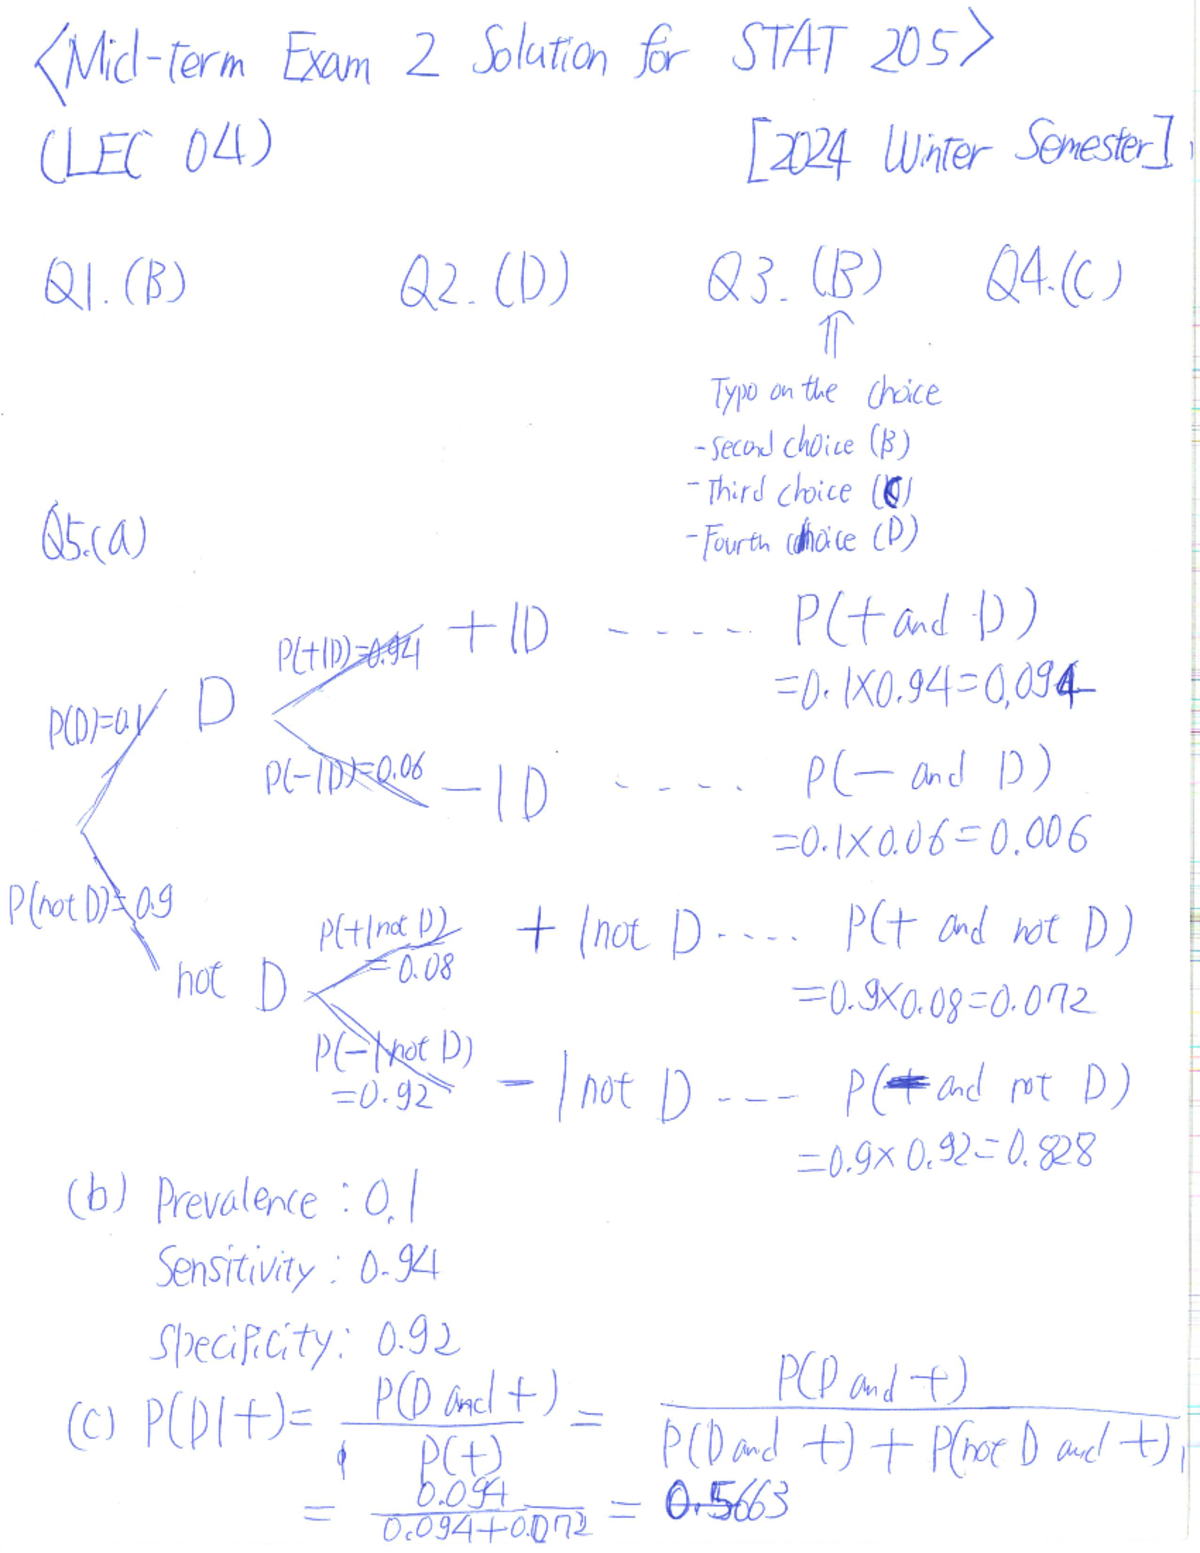 <Mid-term Exam 2 Solution for STAT 205>
(LEC 04) [2024 Winter Semester].
Q1.(B) Q2.(D) Q3.(B) Q4.(C)
⇑
Typo on the choice
-Second choice (B)
-Third choice (C)
-Fourth choice (D)
Q5.(a)
P(D)=0.1 D P(+|D)=0.94 +|D ----- P(+ and D)
=0.1×0.94=0.094
P(-|D)=0.06 -|D ---- P(- and D)
=0.1×0.06=0.006
P(not D)=0.9 not D P(+|not D)
=0.08 +|not D ---- P(+ and not D)
=0.9×0.08=0.072
P(-|not D)
=0.92 -|not D --- P(- and not D)
=0.9×0.92=0.828
(b) Prevalence : 0.1
Sensitivity : 0.94
Specificity : 0.92
(c) P(D|+)= P(D and +) / P(+) = P(D and +) / P(D and +) + P(not D and +)
= 0.094 / 0.094+0.072 = 0.5663